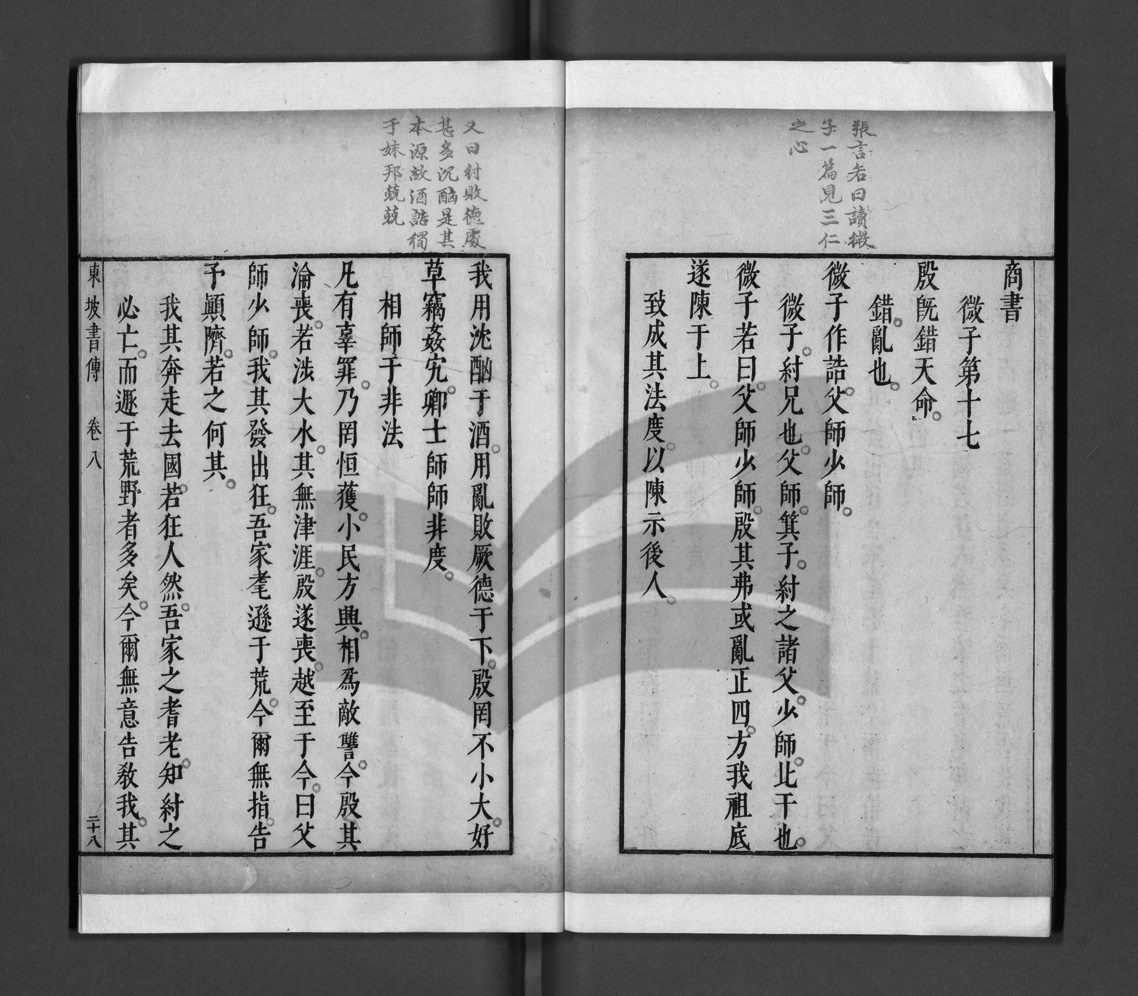 張言若曰讀微
子一篇見三仁
之心
商書
微子第十七
殷旣錯天命。
錯。亂也。
微子作誥。父師少師。
微子。紂兄也。父師。箕子。紂之諸父。少師。比干也。
微子若曰。父師少師。殷其弗或亂正四。方我祖底
遂陳于上。
致成其法度。以陳示後人。
又曰紂敗德處
甚多沉酗是其
本源故酒誥獨
于妹邦兢兢
我用沈酗于酒。用亂敗厥德于下。殷罔不小大。好
草竊姦宄。卿士師師非度。
相師于非法
凡有辜罪。乃罔恒獲。小民方興。相爲敵讐。今殷其
淪喪。若涉大水。其無津涯。殷遂喪。越至于今。曰父
師少師。我其發出狂。吾家耄遜于荒。今爾無指。告
予顚隮。若之何其。
我其奔走去國。若狂人然。吾家之耆老。知紂之
必亡。而遯于荒野者多矣。今爾無意告敎我。其
東坡書傳 卷八 二十八